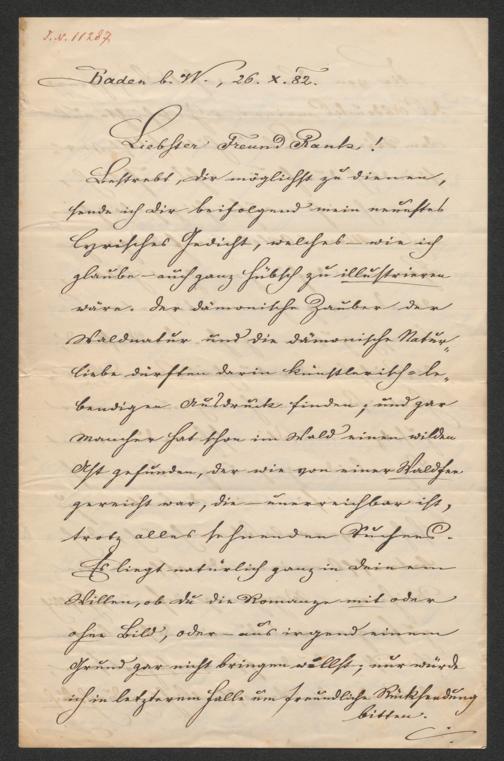 J.N. 11287
Baden b. W., 26. X. 82.
Liebster Freund Rank!
Bestrebt, Dir möglichst zu dienen,
sende ich Dir beifolgend mein neuestes
lyrisches Gedicht, welches – wie ich
glaube – auch ganz hübsch zu illustrieren
wäre. Der dämonische Zauber der
Waldnatur und die dämonische Natur-
liebe dürften darin künstlerisch-le-
bendigen Ausdruck finden; und gar
Mancher hat schon im Wald einen wilden
Ast gefunden, der wie von einer Waldfee
gereicht war, die – unerreichbar ist,
trotz alles sehnenden Suchens.
Es liegt natürlich ganz in Deinem
Willen, ob Du die Romanze mit oder
ohne Bild, oder – aus irgend einem
Grund gar nicht bringen willst; nur würde
ich in letzterem Falle um freundliche Rücksendung
bitten.